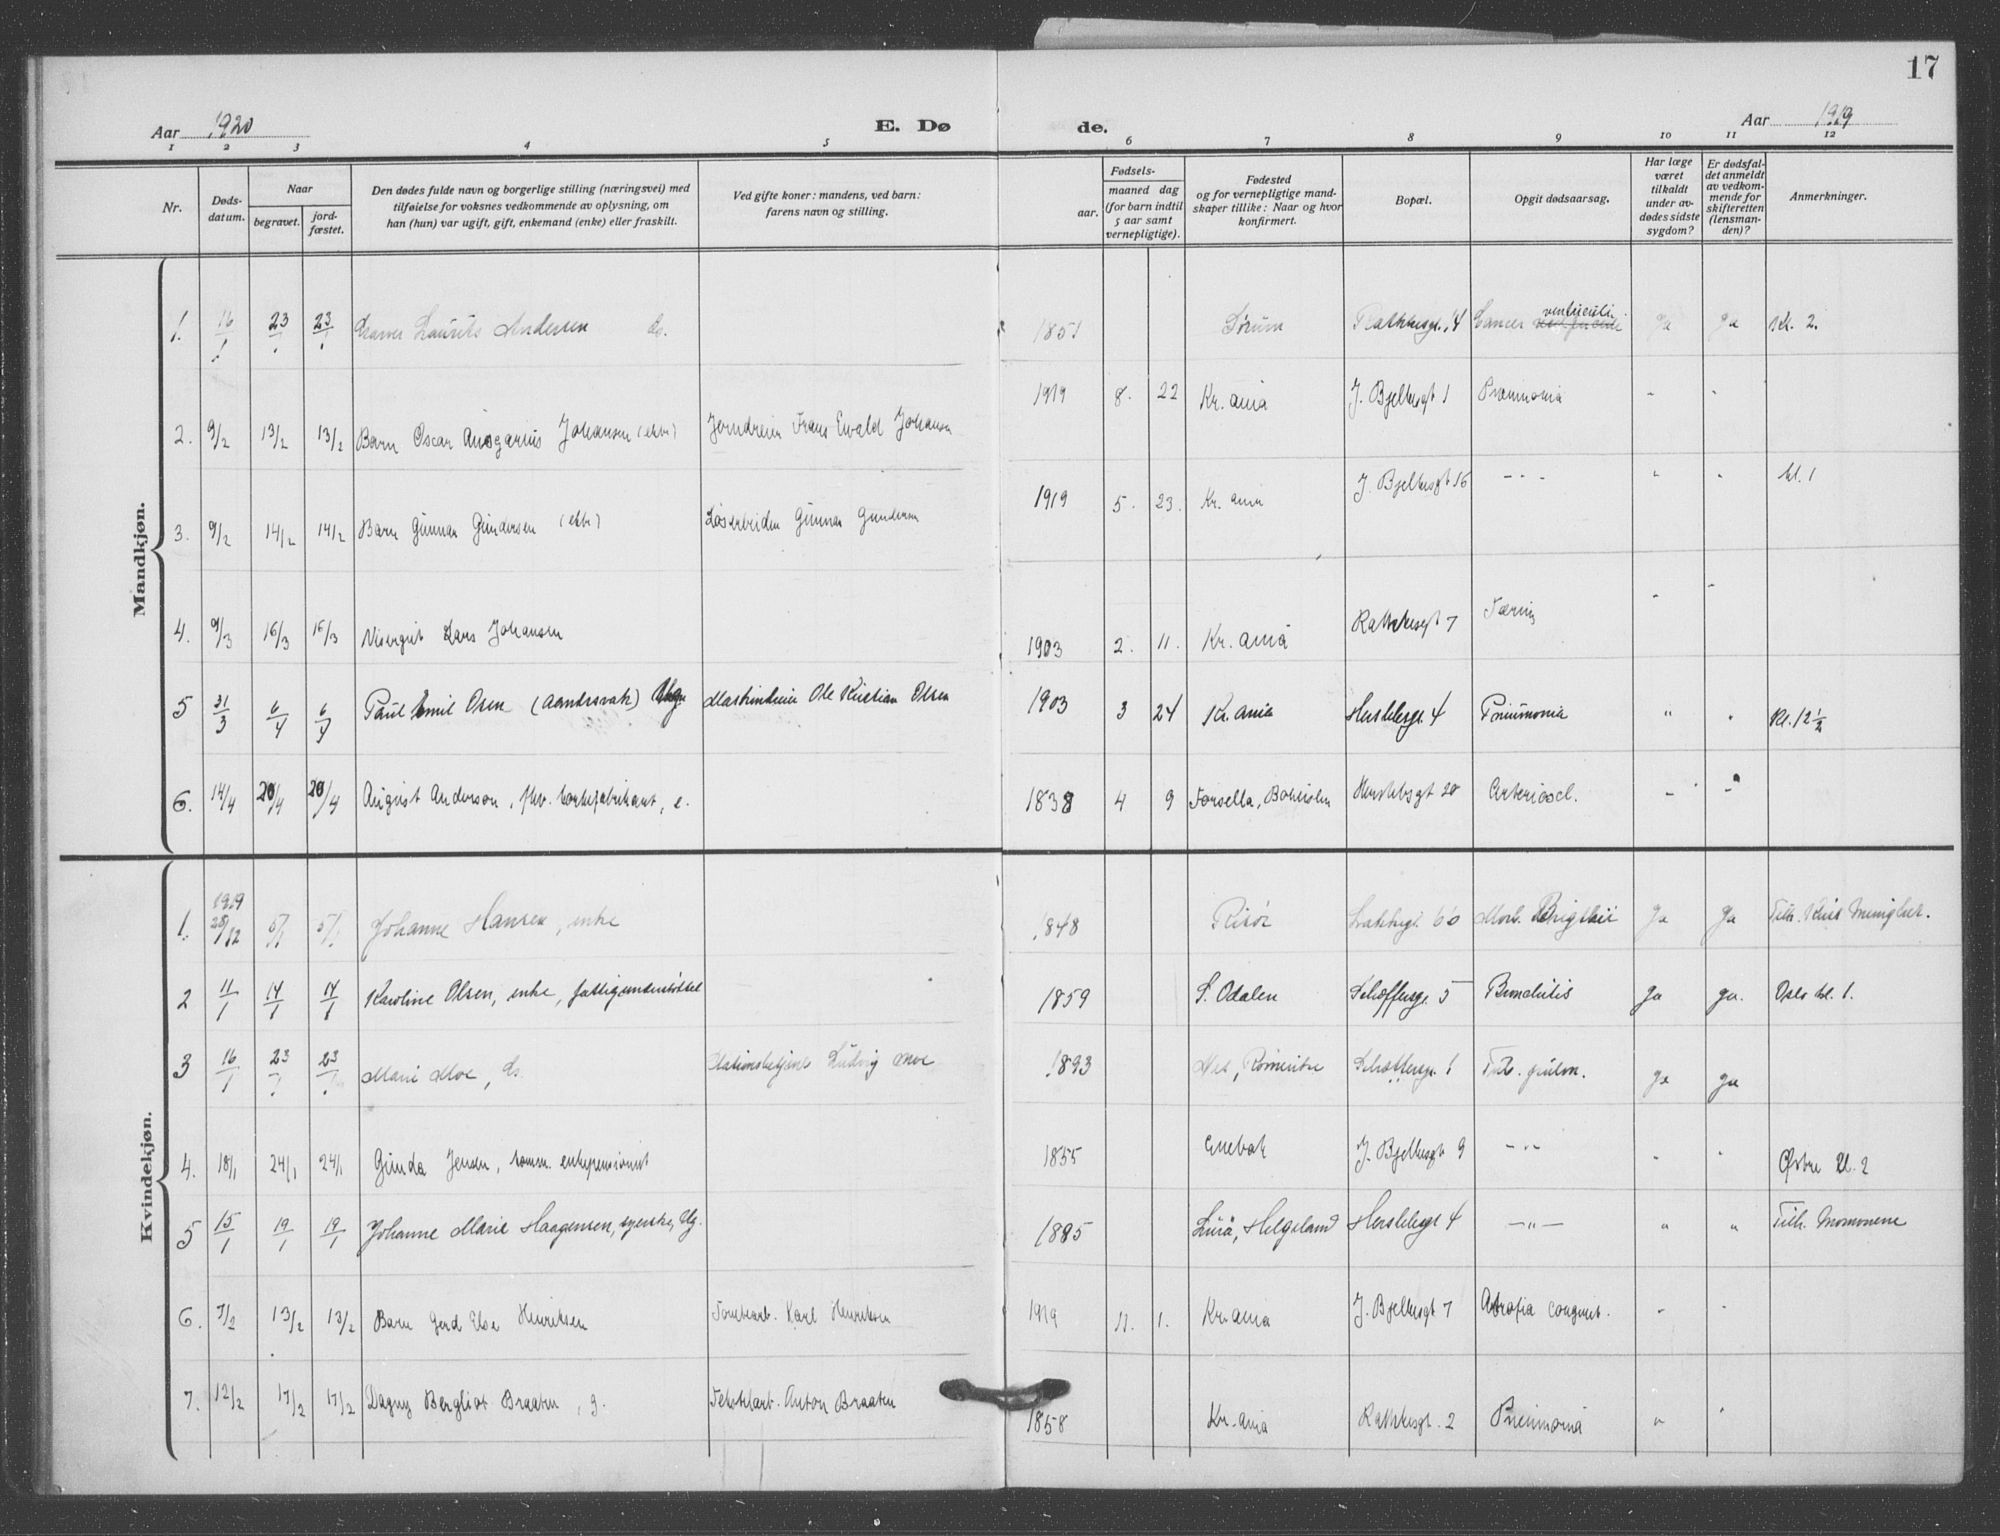 17
Aar 1920 E. Dø de. Aar 1919
1 2 3 4 5 6 7 8 9 10 11 12
Nr. Døds-datum. Naar begravet. jord-fæstet. Den dødes fulde navn og borgerlige stilling (næringsvei) med tilføielse for voksnes vedkommende av oplysning, om han (hun) var ugift, gift, enkemand (enke) eller fraskilt. Ved gifte koner: mandens, ved barn: farens navn og stilling. Fødsels- aar. maaned dag (for barn indtil 5 aar samt vernepligtige). Fødested og for vernepligtige mandskaper tillike: Naar og hvor konfirmert. Bopæl. Opgit dødsaarsag. Har læge været tilkaldt under avdødes sidste sygdom? Er dødsfaldet anmeldt av vedkommende for skifteretten (lensmanden)? Anmerkninger.
Mandkjøn.
1. 16/1 23/1 23/1 Laurits Andersen 1851 Sørum 14 Cancer ventriculi Ja Ja Kl. 2.
2. 9/2 13/2 13/2 Barn Oscar Ansgarius Johansen (ekte) Jerndreier Frans Ewald Johansen 1919 8. 22 Kr.ania J. Bjelkesgt 1 Pneumonia - -
3. 9/2 14/2 14/2 Barn Gunnar Gundersen (ekte) Løsarbeider Gunnar Gundersen 1919 5. 23. Kr.ania J. Bjelkesgt 16 - " - " " kl. 1
4. 9/3 16/3 16/3 Visergut Lars Johansen 1903 2. 11. Kr.ania Rathkesgt 7 Tæring " "
5 31/3 6/4 6/4 Paul Emil Olsen (aandssvak) Ug. Maskindreier Ole Kristian Olsen 1903 3 24 Kr.ania Herslebsgt. 4 Pneumonia " " Kl. 12 1/2
6. 14/4 20/4 20/4 August Anderson, fhv. korkefabrikant, e. 1838 4 9 Torsella, Bohuslen Herslebsgt 20 Arterioscl. - " -
Kvindekjøn.
1. 1919 28/12 5/1 5/1 Johanne Hansen, enke 1848 Risør 60 Morb. Brightii Ja Ja
2 11/1 14/1 14/1 Karoline Olsen, enke, fattigunderstøttet 1859 S. Odalen Schæffersgt. 5 Bronchitis Ja Ja. Oslo kl. 1.
3 16/1 23/1 23/1 Marie Moe, Stationsbetjent Ludvig Moe 1893 Nes, Romerike Schæffersgt. 1 Tub. pulm. Ja Ja
4. 18/1 24/1 24/1 Gunda Jensen, komm. enkepensionist 1855 Enebak J. Bjelkesgt 9 - " - " " Østre kl. 2
5 15/1 19/1 19/1 Johanne Marie Haagensen, syerske, Ug. 1885 Lurø, Helgeland Herslebsgt 4 - " - " " Tilh. Mormonene
6. 7/2 13/2 13/2 Barn Gerd Else Henriksen Tomtearb. Karl Henriksen 1919 11. 1. Kr.ania J. Bjelkesgt 7 Atrofia congenit. " "
7. 12/2 17/2 17/2 Dagny Bergliot Braaten, g. Anton Braaten 1858 Kr.ania Rathkesgt. 2 Pneumonia " "